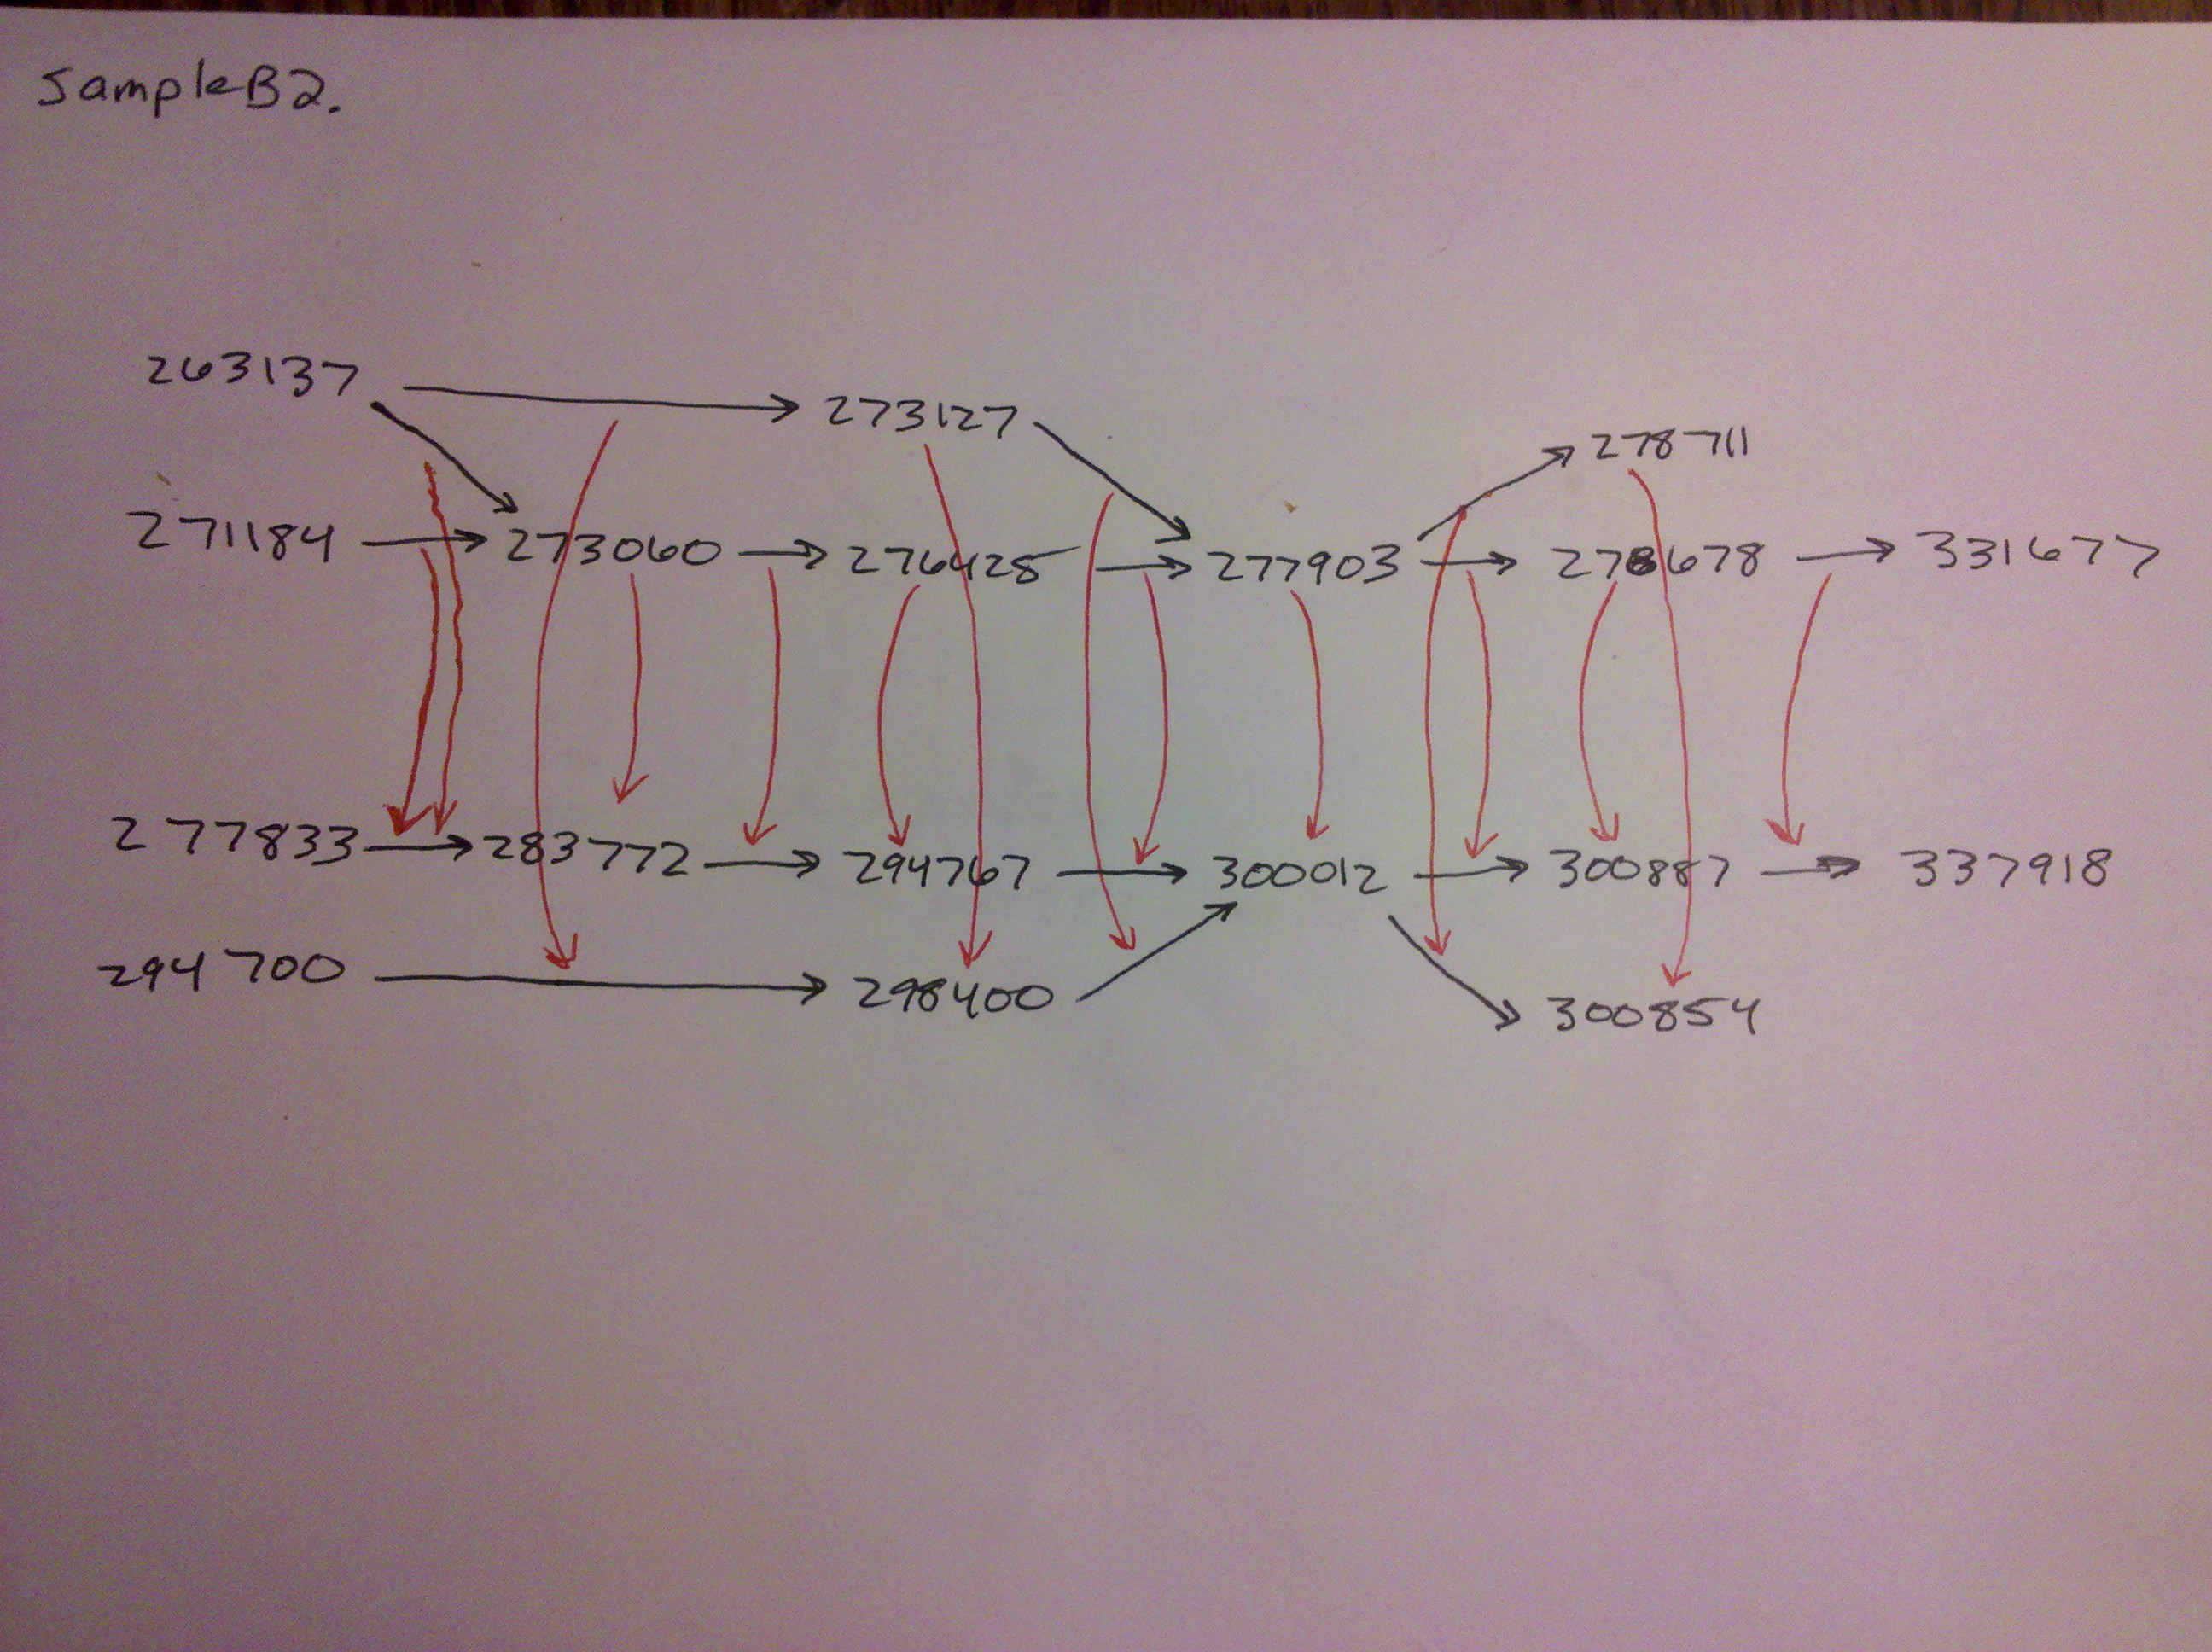 SampleB2.
263137 → 273127
278711
271184 → 273060 → 276425 → 277903 → 278678 → 331677
277833 → 283772 → 294767 → 300012 → 300887 → 337918
294700 → 298400
300854